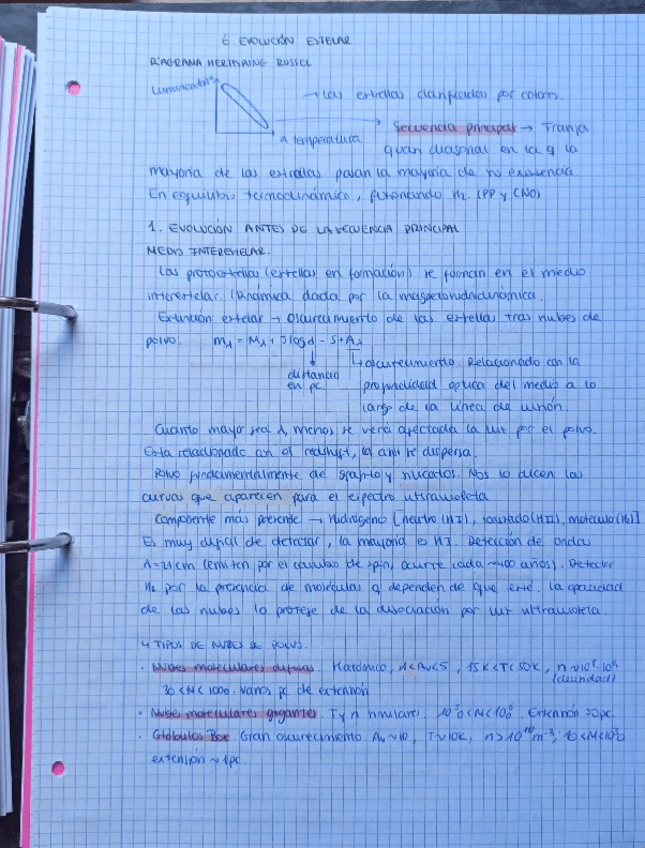 6. EVOLUCIÓN ESTELAR
DIAGRAMA HERTZSPRUNG RUSSEL
Luminosidad
→ Las estrellas clasificadas por colores.
temperatura
Secuencia principal → Franja
quasi diagonal en la q la
mayoría de las estrellas pasan la mayoría de su existencia
En equilibrio termodinámico, fusionando H₂. (PP y CNO)
1. EVOLUCIÓN ANTES DE LA SECUENCIA PRINCIPAL
MEDIO INTERESTELAR.
Las protoestrellas (estrellas en formación) se forman en el medio
interestelar. Dinámica dada por la magnetohidrodinámica.
Extinción estelar → oscurecimiento de las estrellas tras nubes de
polvo. mλ = Mλ + 5 log d - 5 + Aλ
↓ distancia en pc
↳ oscurecimiento. Relacionado con la
profundidad óptica del medio a lo
largo de la línea de visión.
Cuanto mayor sea λ, menos se verá afectada la luz por el polvo.
Está relacionado con el redshift, la azul se dispersa.
Polvo fundamentalmente de grafito y silicatos. Nos lo dicen las
curvas que aparecen para el espectro ultravioleta
Componente más presente → Hidrógeno [neutro (HI), ionizado (HII), molecular (H₂)]
Es muy difícil de detectar, la mayoría es HI. Detección de ondas
λ=21cm (emiten por el cambio de spin, ocurre cada años). Detectar
H₂ por la presencia de moléculas q dependen de que esté. La opacidad
de las nubes lo protege de la disociación por luz ultravioleta.
4 TIPOS DE NUBES DE POLVO.
· Nubes moleculares difusas. H atómico, 1<Av<5, 15K<T<50K, n
(densidad)
30<M<1000. varios pc de extensión
· Nubes moleculares gigantes. T y n similares. Extensión 50pc.
· Glóbulos Bok. Gran oscurecimiento Av~10, T~10K, n>10¹⁰m⁻³,
extensión ~1pc.